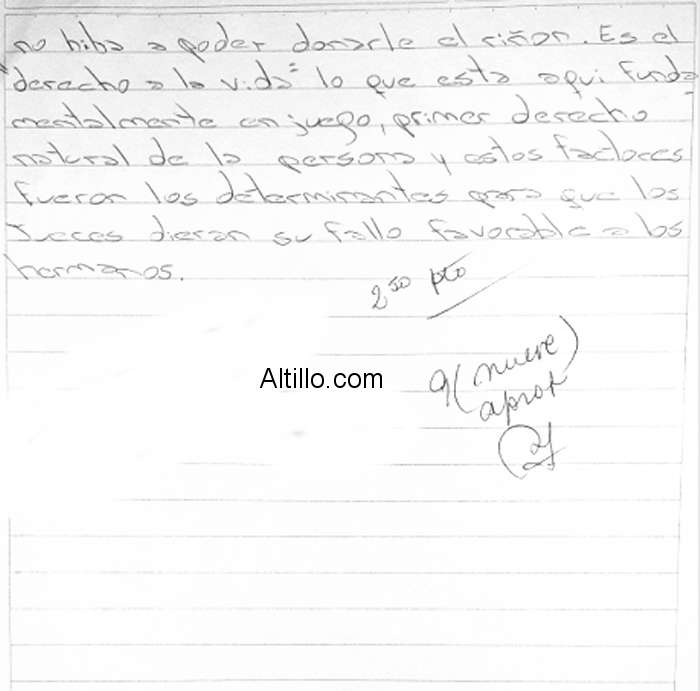 no hiba a poder donarle el riñon. Es el
"derecho a la vida" lo que esta aqui funda
mentalmente en juego, primer derecho
natural de la persona y estos factores
fueron los determinantes para que los
Jueces dieran su fallo favorable a los
hermanos.
2 50 pto
9 (nueve)
aprox
Altillo.com